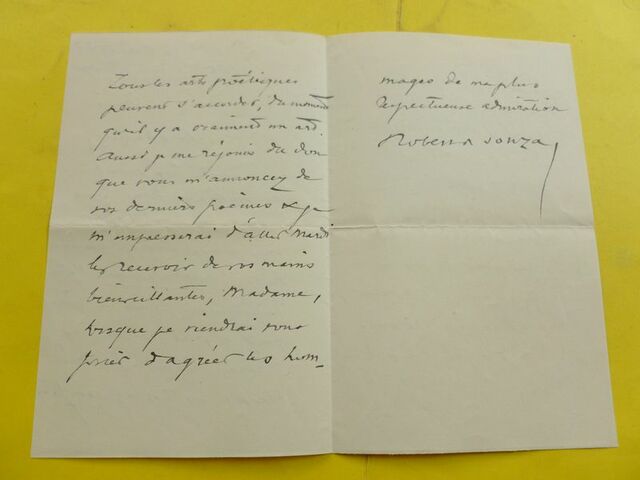 Tous les arts poétiques
peuvent s'accorder, du moment
qu'il y a vraiment un art.
Aussi je me réjouis du don
que vous m'annoncez de
vos derniers poèmes & je
m'empresserai d'aller Mardi
les recevoir de vos mains
bienveillantes, Madame,
lorsque je viendrai vous
prier d'agréer les hom-
mages de ma plus
respectueuse admiration
Robert de Souza